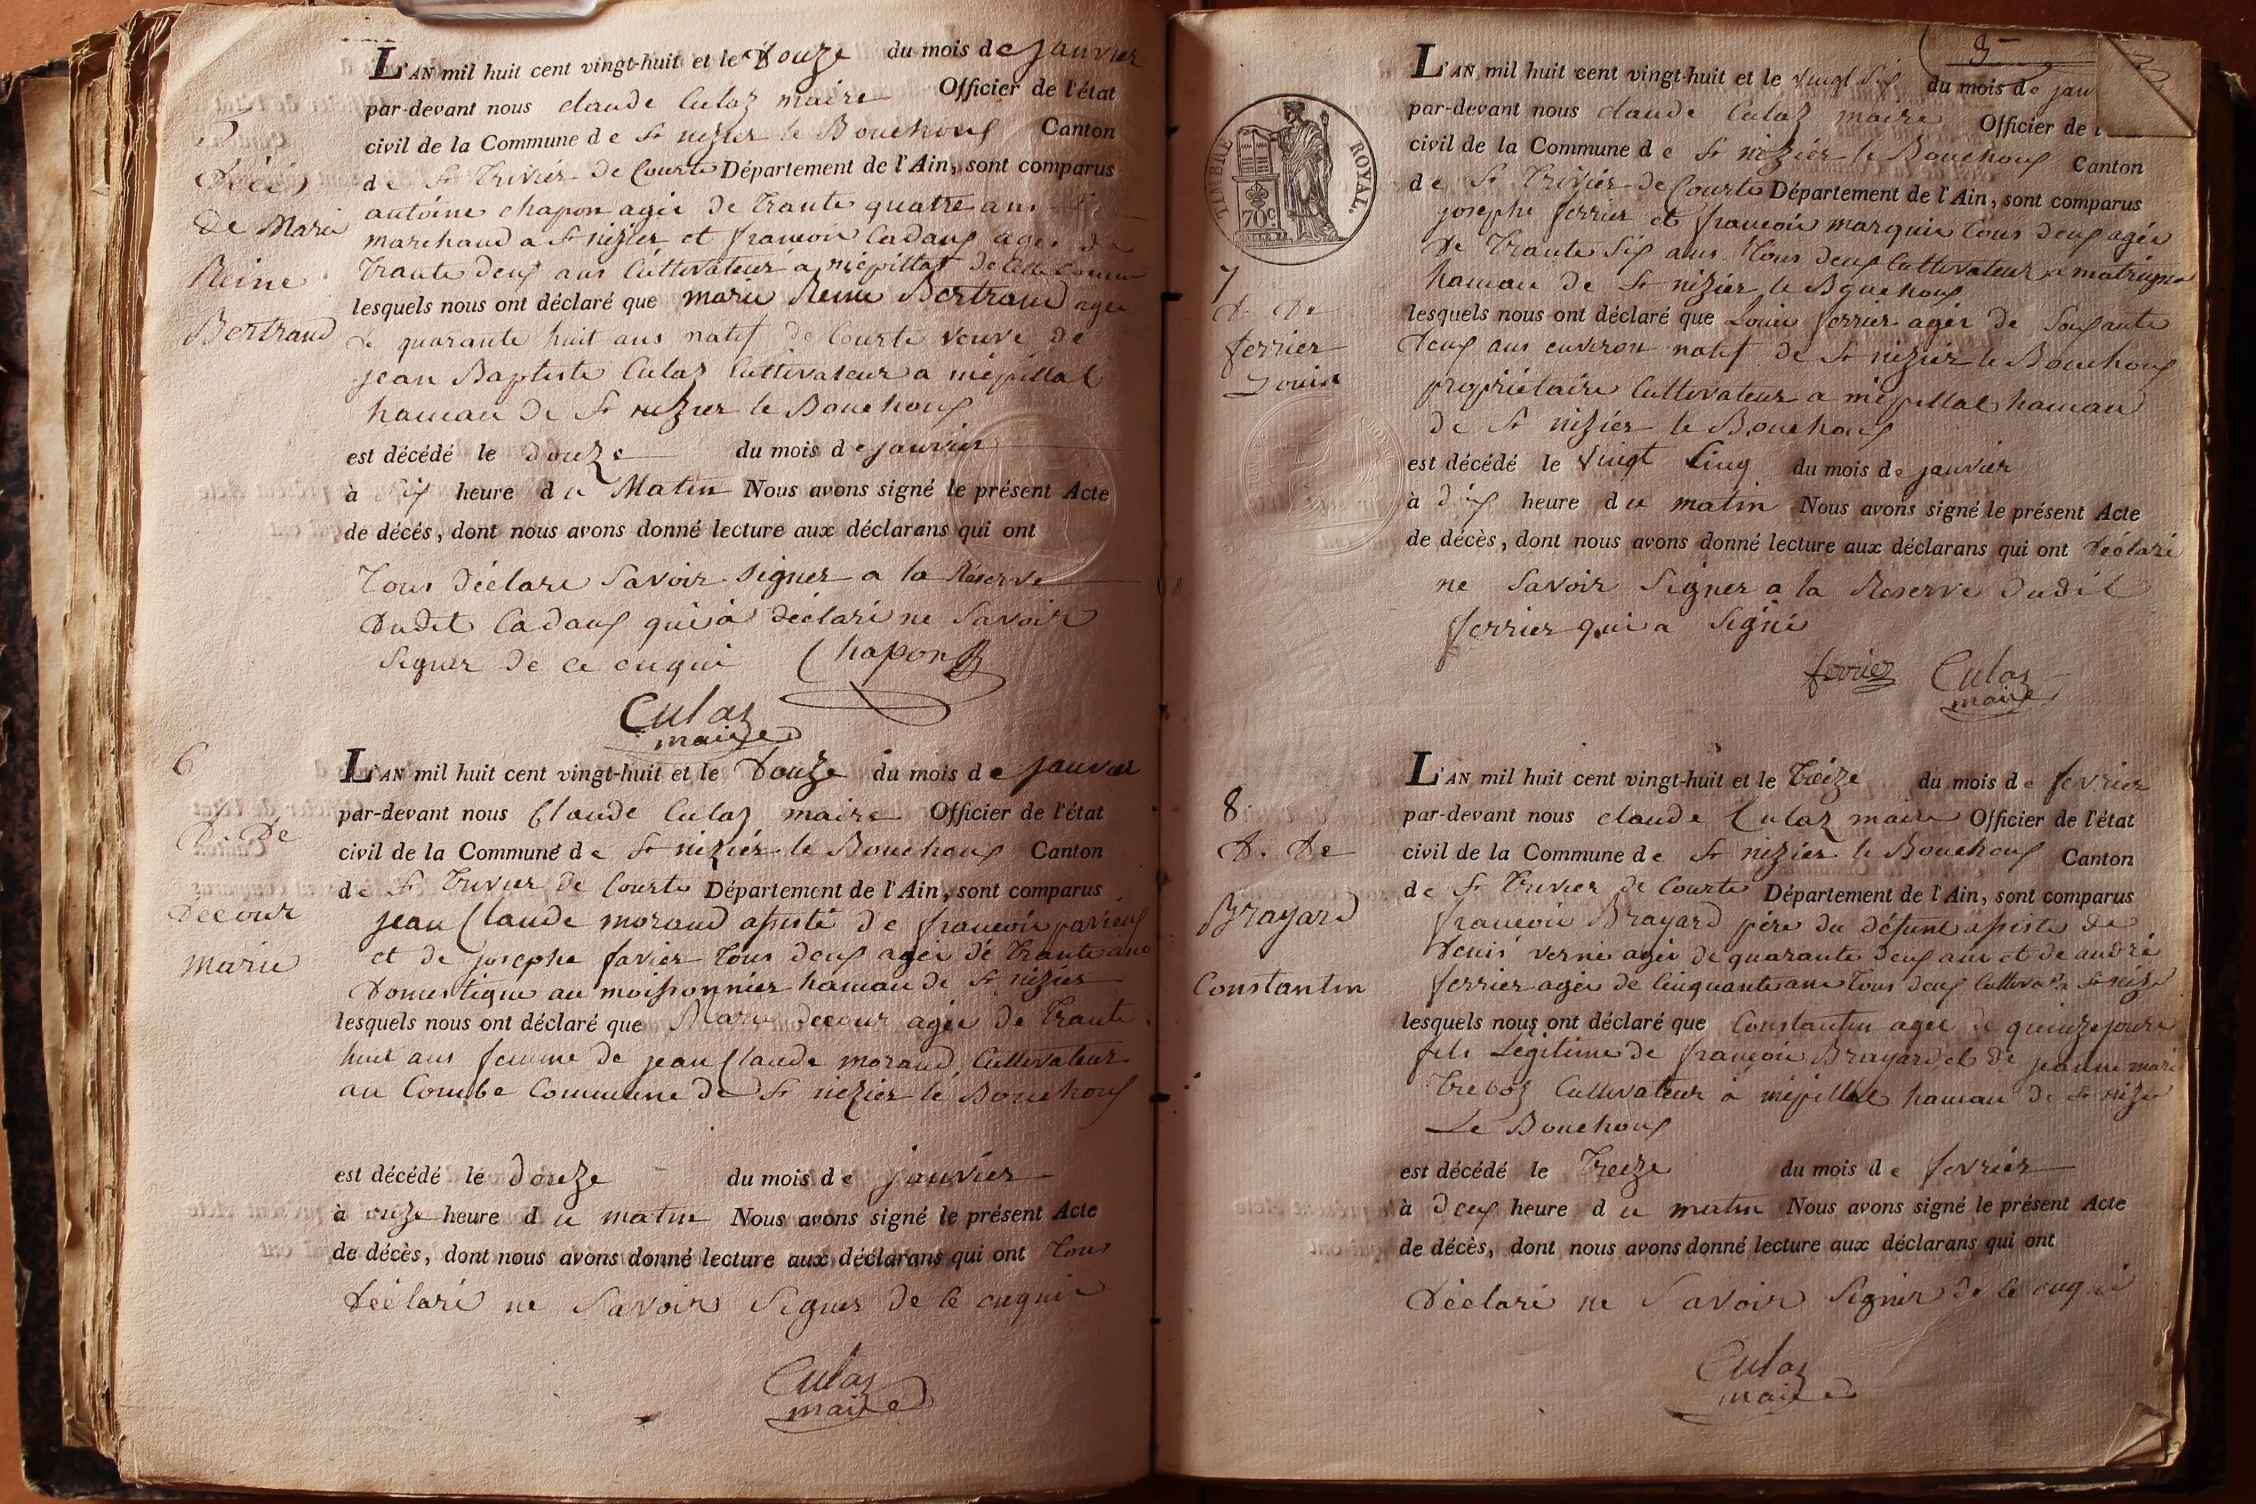 5
Décès
de Marie
Reine
Bertrand
L'AN mil huit cent vingt-huit et le Douze du mois de janvier
par-devant nous claude Culaz maire Officier de l'état
civil de la Commune de St nizier le Bouchoux Canton
de St Trivier de Courte Département de l'Ain, sont comparus
antoine chapon agée de trante quatre ans
marchand a St nizier et françois Cadaux agée de
trante deux ans Cultivateur a mépillat de Cette Commune
lesquels nous ont déclaré que marie Reine Bertrand agée
de quarante huit ans natif de Courte veuve de
jean Baptiste Culaz Cultivateur a mépillat
hamau de St nizier le Bouchoux
est décédé le douze du mois de janvier
à six heure du Matin Nous avons signé le présent Acte
de décés, dont nous avons donné lecture aux déclarans qui ont
tous déclare Savoir Signer a la Réserve
Dudit Cadaux qui a déclaré ne Savoir
Signer de ce enqui Chapon
Culaz
maire
6
D. De
Decour
marie
L'AN mil huit cent vingt-huit et le Douze du mois de janvier
par-devant nous Claude Culaz maire Officier de l'état
civil de la Commune de St nizier le Bouchoux Canton
de St Trivier de Courte Département de l'Ain, sont comparus
jean Claude morand assisté de françois pavieux
et de josephe favier tous deux agée de trante ans
Domestique au moissonnier hamau de St nizier
lesquels nous ont déclaré que Marie decour agée de trante
huit ans femme de jean Claude morand, Cultivateur
au Combe Commune de St nizier le Bouchoux
est décédé le douze du mois de janvier
à onze heure du matin Nous avons signé le présent Acte
de décès, dont nous avons donné lecture aux déclarans qui ont tous
Déclaré ne Savoir Signer de ce enqui
Culaz
maire
TIMBRE ROYAL.
70c
7
D. De
ferrier
Louis
L'AN mil huit cent vingt-huit et le vingt Six du mois de jan
par-devant nous claude Culaz maire Officier de
civil de la Commune de St nizier le Bouchoux Canton
de St Trivier de Courte Département de l'Ain, sont comparus
josephe ferrier et françois marquis tous deux agée
de trante Six ans tous deux Cultivateur a
hamau de St nizier le Bouchoux
lesquels nous ont déclaré que Louis ferrier agée de Soixante
deux ans environ natif de St nizier le Bouchoux
propriétaire Cultivateur a mépillat hamau
de St nizier le Bouchoux
est décédé le vingt Cinq du mois de janvier
à dix heure du matin Nous avons signé le présent Acte
de décès, dont nous avons donné lecture aux déclarans qui ont déclaré
ne Savoir Signer a la Reserve Dudit
ferrier qui a Signé
ferrier Culaz
maire
8
D. De
Brayard
Constantin
L'AN mil huit cent vingt-huit et le treize du mois de fevrier
par-devant nous claude Culaz maire Officier de l'état
civil de la Commune de St nizier le Bouchoux Canton
de St Trivier de Courte Département de l'Ain, sont comparus
françois Brayard père du défunt assisté de
Denis vernie agée de quarante deux ans et de andré
ferrier agée de Cinquante ans tous deux a St nizi
lesquels nous ont déclaré que Constantin agée de quinze jours
fils Légitime de françois Brayard et de jeanne mari
treboz Cultivateur a mépillat hamau de St nizier
Le Bouchoux
est décédé le treize du mois de fevrier
à deux heure du matin Nous avons signé le présent Acte
de décès, dont nous avons donné lecture aux déclarans qui ont
Déclaré ne Savoir Signer de ce enqui
Culaz
maire